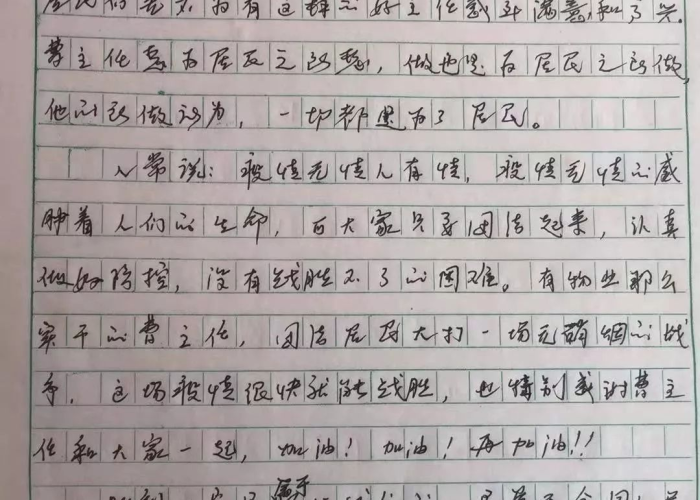 居民们是不为有这样的好主任感到满意和高兴.
曹主任急为居民之所愁，做也是为居民之所做，
他的所做所为，一切都是为了居民。
人常说：疫情无情人有情，疫情无情的威
肿着人们的生命，而大家只要团结起来，认真
做好防控，没有战胜不了的困难。有物业那么
实干的曹主任，团结居民大打一场无硝烟的战
争．这场疫情很快就能战胜，也特别感谢曹主
任和大家一起，加油！加油！再加油！！